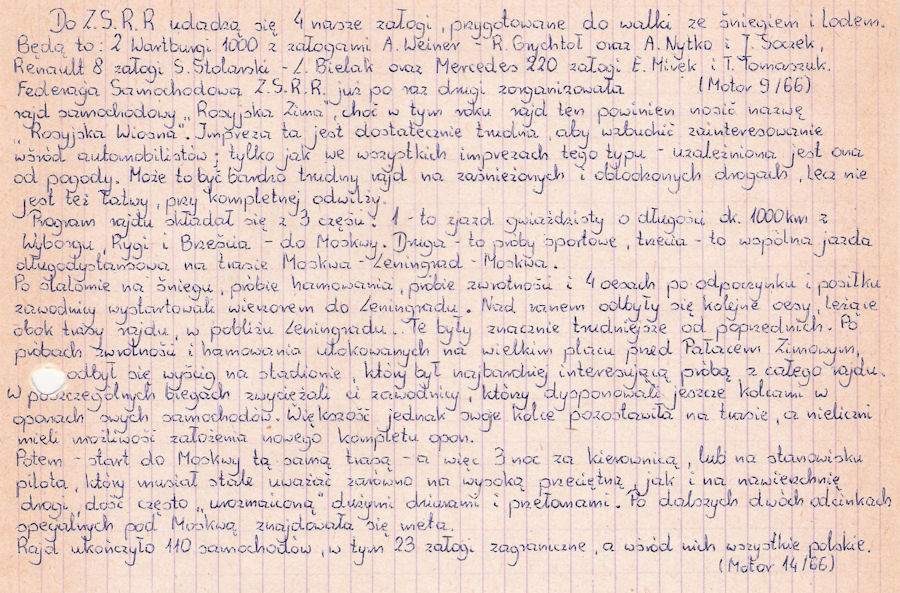 Do Z.S.R.R udadzą się 4 nasze załogi, przygotowane do walki ze śniegiem i lodem.
Będą to: 2 Wartburgi 1000 z załogami A. Weiner - R. Grychtoł oraz A. Nytko i J. Soczek,
Renault 8 załogi S. Stolarski - L. Bielak oraz Mercedes 220 załogi E. Mirek i T. Tomaszuk.
Federacja Samochodowa Z.S.R.R. już po raz drugi zorganizowała (Motor 9/66)
rajd samochodowy „Rosyjska Zima", choć w tym roku rajd ten powinien nosić nazwę
„Rosyjska Wiosna". Impreza ta jest dostatecznie trudna, aby wzbudzić zainteresowanie
wśród automobilistów; tylko jak we wszystkich imprezach tego typu - uzależniona jest ona
od pogody. Może to być bardzo trudny rajd na zaśnieżonych i oblodzonych drogach, lecz nie
jest też łatwy, przy kompletnej odwilży.
Program rajdu składał się z 3 części: 1 - to zjazd gwiaździsty o długości ok. 1000 km z
Wyborgu, Rygi i Brześcia - do Moskwy. Druga - to próby sportowe, trzecia - to wspólna jazda
długodystansowa na trasie Moskwa - Leningrad - Moskwa.
Po slalomie na śniegu, próbie hamowania, próbie zwrotności i 4 oesach po odpoczynku i posiłku
zawodnicy wystartowali wieczorem do Leningradu. Nad ranem odbyły się kolejne oesy, leżące
obok trasy rajdu, w pobliżu Leningradu. Te były znacznie trudniejsze od poprzednich. Po
próbach zwrotności i hamowania ulokowanych na wielkim placu przed Pałacem Zimowym,
odbył się wyścig na stadionie, który był najbardziej interesującą próbą z całego rajdu.
W poszczególnych biegach zwyciężali ci zawodnicy, którzy dysponowali jeszcze kolcami w
oponach swych samochodów. Większość jednak swoje kolce pozostawiła na trasie, a nieliczni
mieli możliwość założenia nowego kompletu opon.
Potem - start do Moskwy tą samą trasą - a więc 3 noc za kierownicą, lub na stanowisku
pilota, który musiał stale uważać zarówno na wysoką przeciętną, jak i na nawierzchnię
drogi, dość często „urozmaiconą" dużymi dziurami i przełomami. Po dalszych dwóch odcinkach
specjalnych pod Moskwą znajdowała się meta.
Rajd ukończyło 110 samochodów, w tym 23 załogi zagraniczne, a wśród nich wszystkie polskie.
(Motor 14/66)